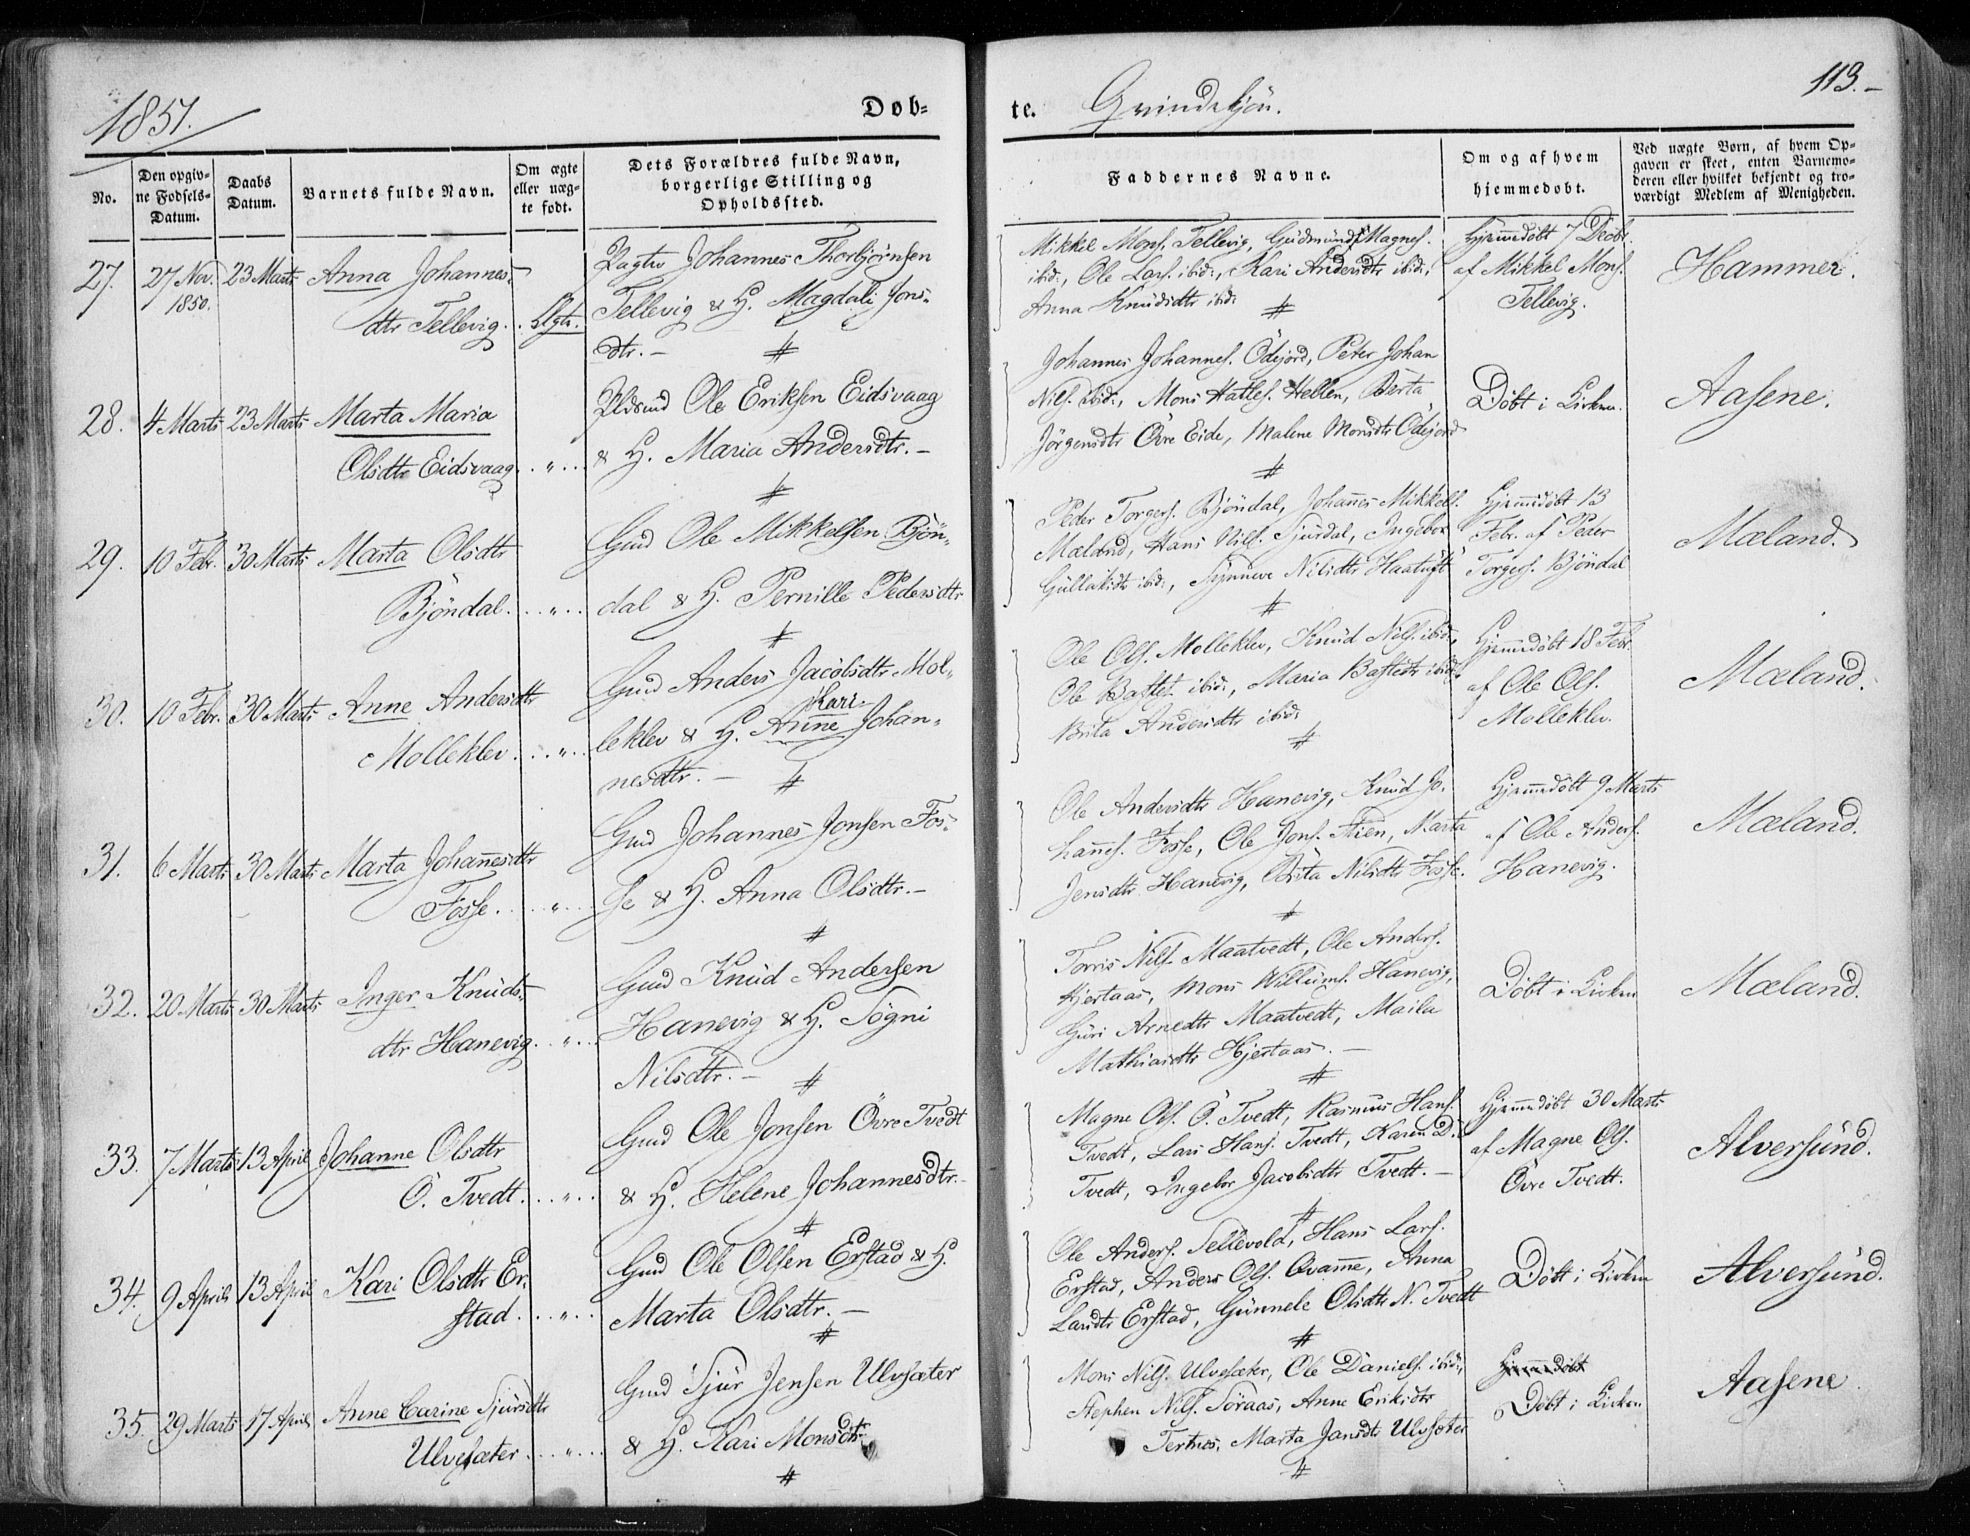 1851.
Døb=
te. Qvindekjön.
113.-
No.
Den opgiv=
ne Fødsels=
Datum.
Daabs
Datum.
Barnets fulde Navn.
Om ægte
eller uæg=
te født.
Dets Forældres fulde Navn,
borgerlige Stilling og
Opholdssted.
Faddernes Navne.
Om og af hvem
hjemmedøbt.
Ved uægte Børn, af hvem Op=
gaven er skeet, enten Barnemo=
deren eller hvilket bekjendt og tro=
værdigt Medlem af Menigheden.
27. 27 Nov. 23 Marts Anna Johannes=
1850.
dtr Tellevig. Ægte.
Johannes Thorbjørnsen
Tellevig & H. Magdali Jons=
dtr.-
Mikkel Mons. Tellevig, Gudmund Magnes.
ibid:, Ole Lars. ibid:, Kari Andersdtr ibid:,
Anna Knudsdtr ibid:
Hjemmedöbt 7 Decbr.
af Mikkel Mons.
Tellevig.
Hammer.
28. 4 Marts 23 Marts Marta Maria
Olsdtr Eidsvaag . . " . . .
Ole Eriksen Eidsvaag
& H. Maria Andersdtr.-
Johannes Johannes. Ödejord, Peter Johan
Nils. ibid:, Mons Hatles. Heblen, Berta
Jörgensdtr Övre Eide, Malene Monsdtr Ödejord
Döbt i Kirken.
Aasene.
29. 10 Febr. 30 Marts Marta Olsdtr
Bjöndal. . . " . . .
Gmd Ole Mikkelsen Bjön=
dal & H. Pernille Pedersdtr
Peder Torgers. Bjöndal, Johannes Mikkels.
Mæland, Hans Nils. Sjurdal, Ingebor
Gullaksdtr ibid:, Synneve Nilsdtr Haatuft
Hjemmedöbt 13
Febr. af Peder
Torgers. Bjöndal
Mæland.
30. 10 Febr. 30 Marts Anne Andersdtr
Molleklev . . . " . .
Gmd Anders Jacobsdtr Mol=
Kari
leklev & H. Anne Johan=
nesdtr.-
Ole Ols. Molleklev, Knud Nils. ibid:,
Ole Bastes. ibid:, Maria Bastedtr ibid:,
Brita Andersdtr ibid:
Hjemmedöbt 18 Febr.
af Ole Ols.
Molleklev.
Mæland.
31. 6 Marts 30 Marts Marta Johannesdtr
Fosse. . . . " . .
Gmd Johannes Jonsen Fos=
se & H. Anna Olsdtr.-
Ole Andersdtr Hanevig, Knud Jo.
hannes. Fosse, Ole Jons. Stien, Marta
Jensdtr Hanevig, Brita Nilsdtr Fosse.
Hjemmedöbt 9 Marts
af Ole Anders.
Hanevig.
Mæland.
32. 20 Marts 30 Marts Inger Knuds=
dtr Hanevig . . " . .
Gmd Knud Andersen
Hanevig & H. Tögni
Nilsdtr.-
Torris Nils. Maatvedt, Ole Anders.
Hjertaas, Mons Willums. Hanevig,
Guri Arnedtr Maatvedt, Maila
Mathiasdtr Hjertaas.-
Döbt i Kirken
Mæland.
33. 7 Marts 13 April Johanne Olsdtr
Ö. Tvedt. . . " . .
Gmd Ole Jonsen Övre Tvedt
& H. Helene Johannesdtr.-
Magne Ols. Ö. Tvedt, Rasmus Hans.
Tvedt, Lars Hans. Tvedt, Karen D.
Tvedt, Ingebor Jacobsdtr Tvedt.-
Hjemmedöbt 30 Marts
af Magne Ols.
Övre Tvedt.
Alversund.
34. 9 April 13 April Kari Olsdtr Er.
stad. . . " . .
Gmd Ole Olsen Erstad & H.
Marta Olsdtr.-
Ole Anders. Tellevold, Hans Lars.
Erstad, Anders Ols. Qvamme, Anna
Larsdtr Erstad, Gunnele Olsdtr N. Tvedt
Döbt i Kirken
Alversund.
35. 29 Marts 17 April Anne Carine Sjursdtr
Ulvesæter . . . " . .
Gmd Sjur Jensen Ulvsæter
& H. Kari Monsdtr.
Mons Nils. Ulvesæter, Ole Daniels. ibid:,
Stephen Nils. Söraas, Anne Eriksdtr
Tertnes, Marta Jansdtr Ulvsæter
Hjemmedöbt
Döbt i Kirken
Aasene